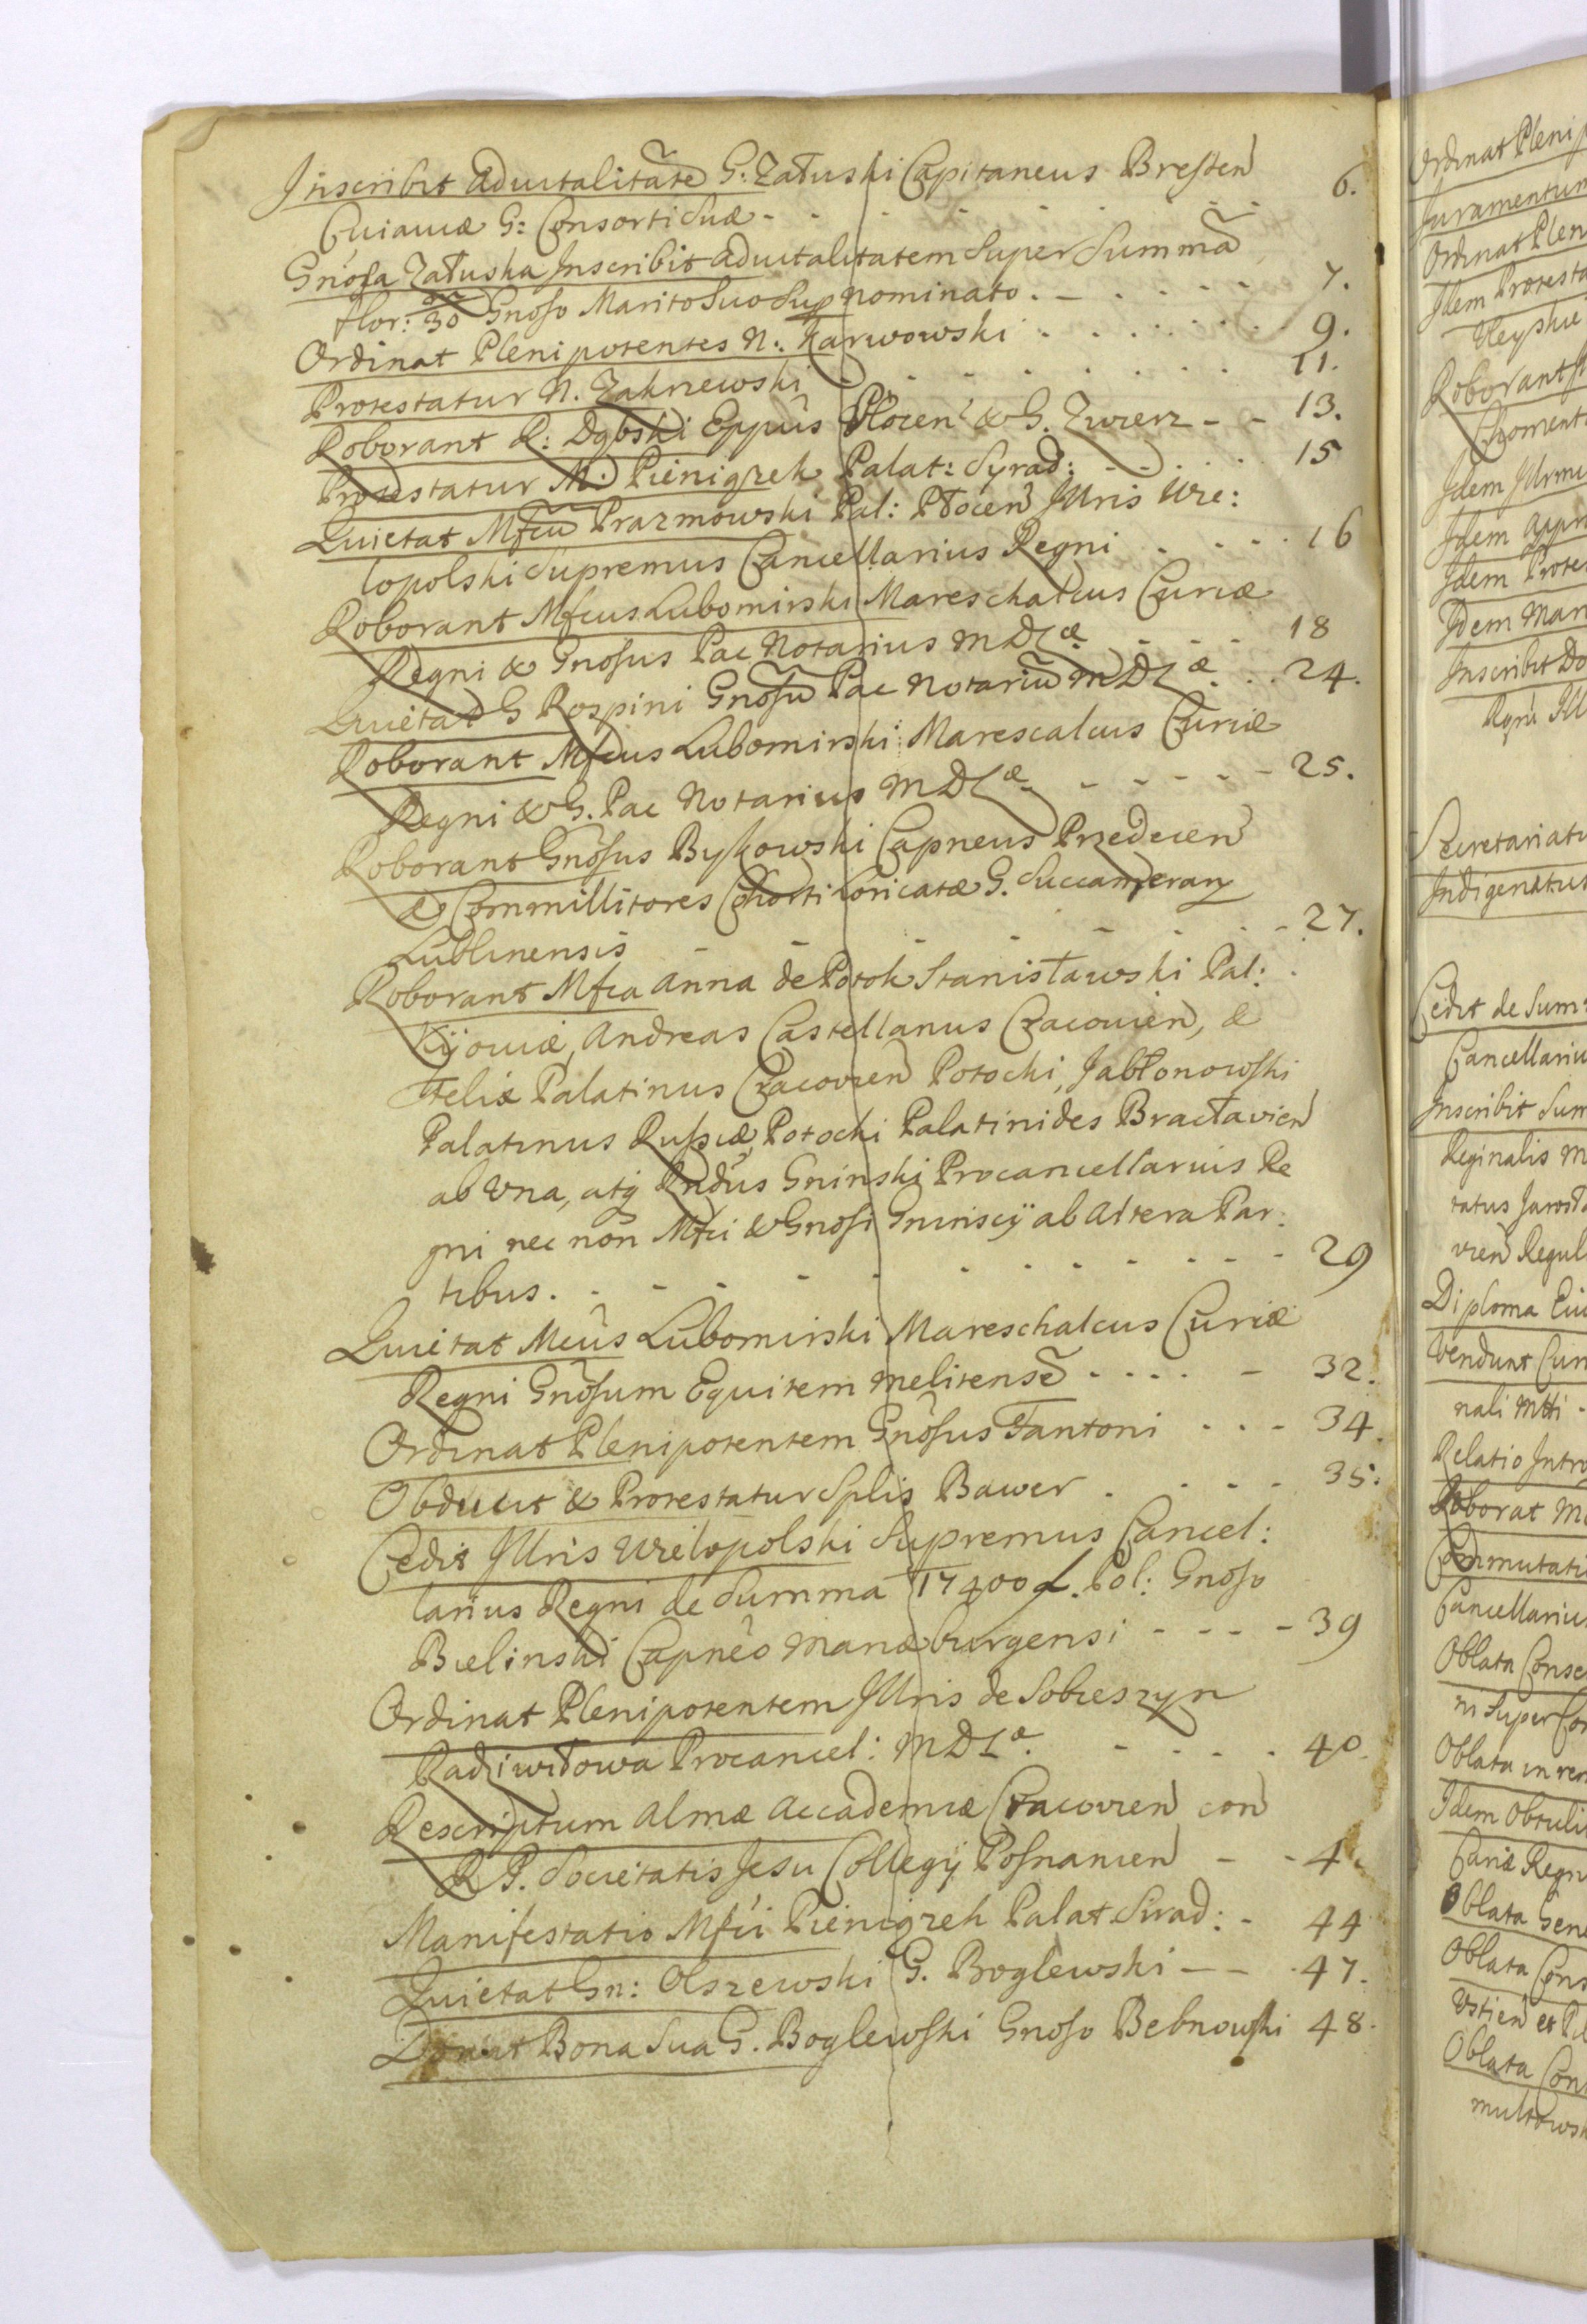 Inscribit aduitalitatē G: Załuski Capitaneus Bresten
Cuiaviæ G: Consorti Suæ - - - - - - 6.
Gnosa Załuska Inscribit aduitalitatem Super Summā
flor: 30 Gnoso Marito Suo Sup nominato - - - - 7.
Ordinat Plenipotentes N: Karwowski - - - - 9.
Protestatur N. Zakrzewski - - - - - - 11.
Roborant R: Dąbski Eppûs Płocen & G. Zwierz - - 13.
Protestatur M: Pieniązek Palat: Syrad: - - - - 15
Quietat Mfcū Prazmowski Pal: Płocen Illris Wie:
lopolski Supremus Cancellarius Regni - - - - 16
Roborant Mfcus Lubomirski Mareschalcus Curiæ
Regni & Gnosus Pac Notarius MDLæ - - - - 18
Quietat G Rospini Gnosū Pac Notariū MDLæ - - 24.
Roborant Mfcus Lubomirski Marescalcus Curiæ
Regni & G. Pac Notarius MDLæ - - - - - 25.
Roborant Gnosus Bykowski Capneus Przedecen
& Commillitores Cohorti Loricatæ G. Succamerary
Lublinensis - - - - - - - - 27.
Roborant Mfca Anna de Potok Stanisławski Pal:
Kijoviæ, Andreas Castellanus Cracovien, &
Felix Palatinus Cracovien Potocki, Jabłonowski
Palatinus Russiæ, Potocki Palatinides Bracłavien
ab Vna, atq Rndus Gninski Procancellarius Re
gni nec non Mfci & Gnosi Gninscÿ ab Altera Par:
tibus. - - - - - - - - - 29
Quietat Mcûs Lubomirski Mareschalcus Curiæ
Regni Gnosum Equitem Melitensē - - - - - 32.
Ordinat Plenipotentem Gnosus Fantoni - - - 34.
Obducit & Protestatur Splis Bawer - - - - 35.
Cedit Illris Wielopolski Supremus Cancel:
larius Regni de Summa 17400 f. Pol: Gnoso
Bielinski Capnêo Manæburgensi - - - - 39
Ordinat Plenipotentem Illris de Sobieszyn
Radziwiłowa Procancel: MDLæ. - - - - 40.
Rescriptum Almæ Accademiæ Cracovien con
R P. Societatis Jesu Collegÿ Posnanien - - 4
Manifestatio Mfci Pieniązek Palat Sirad: - 44
Quietat Gn: Olszewski G. Boglewski - - - 47.
Donat Bona Sua G. Boglewski Gnoso Bebnowski 48.
Ordinat Plenip
Juramentum
Ordinat Plen
Idem Protesta
Roborant
Choment
Idem
Idem
Idem Protes
Idem Man
Inscribit Do
Regni Ill
Secretariatu
Indigenatus
Cedit de Sum
Cancellariu
Inscribit Sum
Reginalis M
tatus Jarosła
vien Regul
Diploma
Vendunt Cum
nali Mtti -
Relatio Intro
Roborat M
Commutati
Cancellarius
Oblata Conse
ni Super Con
Oblata in rem
Idem Obtulit
Curiæ Regn
Oblata Gene
Oblata Cons
Oblata Cons